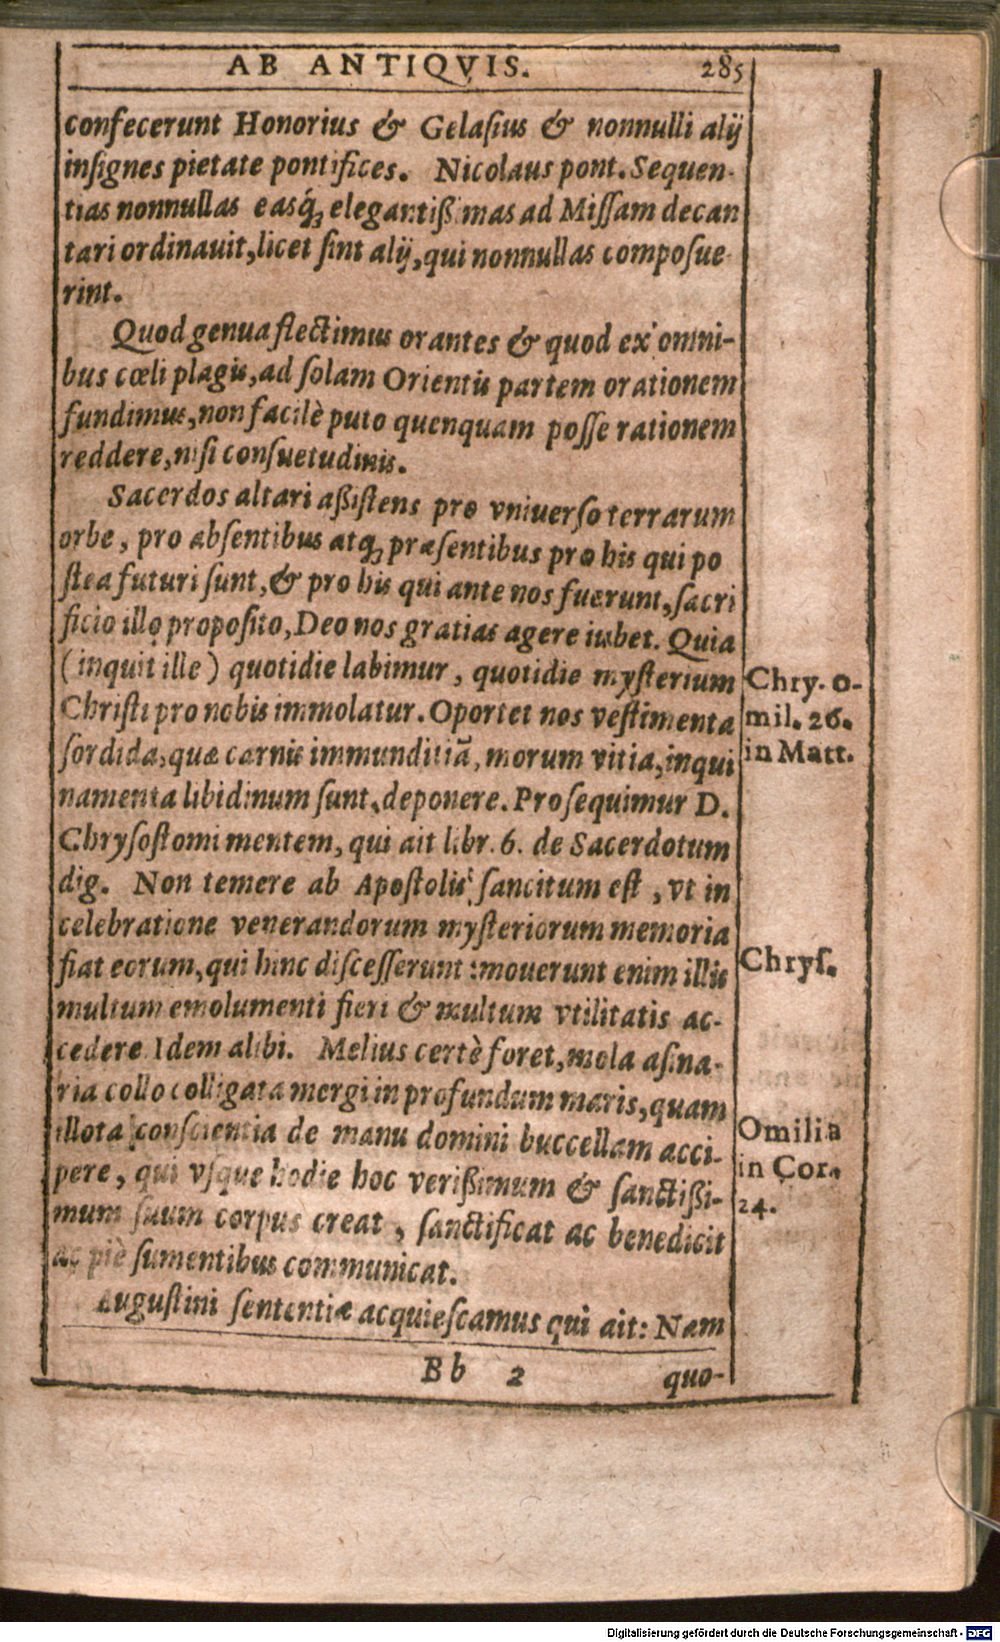 AB ANTIQVIS. 285
confecerunt Honorius & Gelasius & nonnulli alij
insignes pietate pontifices. Nicolaus pont. Sequen-
tias nonnullas easq́; elegantißimas ad Missam decan
tari ordinauit, licet sint alij, qui nonnullas composue
rint.
Quod genua flectimus orantes & quod ex omni-
bus cœli plagis, ad solam Orientis partem orationem
fundimus, non facilè puto quenquam posse rationem
reddere, nisi consuetudinis.
Sacerdos altari aßistens pro vniuerso terrarum
orbe, pro absentibus atq; præsentibus pro his qui po
stea futuri sunt, & pro his qui ante nos fuerunt, sacri
ficio illo proposito, Deo nos gratias agere iubet. Quia
(inquit ille) quotidie labimur, quotidie mysterium
Christi pro nobis immolatur. Oportet nos vestimenta
sordida, quæ carnis immunditiā, morum vitia, inqui
namenta libidinum sunt, deponere. Prosequimur D.
Chrysostomi mentem, qui ait libr. 6. de Sacerdotum
dig. Non temere ab Apostolis sancitum est, vt in
celebratione venerandorum mysteriorum memoria
fiat eorum, qui hinc discesserunt: mouerunt enim illis
multum emolumenti fieri & multum vtilitatis ac-
cedere. Idem alibi. Melius certè foret, mola asina-
ria collo colligata mergi in profundum maris, quam
illota conscientia de manu domini buccellam acci-
pere, qui vsque hodie hoc verißimum & sanctißi-
mum suum corpus creat, sanctificat ac benedicit
ac piè sumentibus communicat.
Augustini sententiæ acquiescamus qui ait: Nam
Bb 2 quo-
Chry. o-
mil. 26.
in Matt.
Chrys.
Omilia
in Cor.
24.
Digitalisierung gefördert durch die Deutsche Forschungsgemeinschaft - DFG